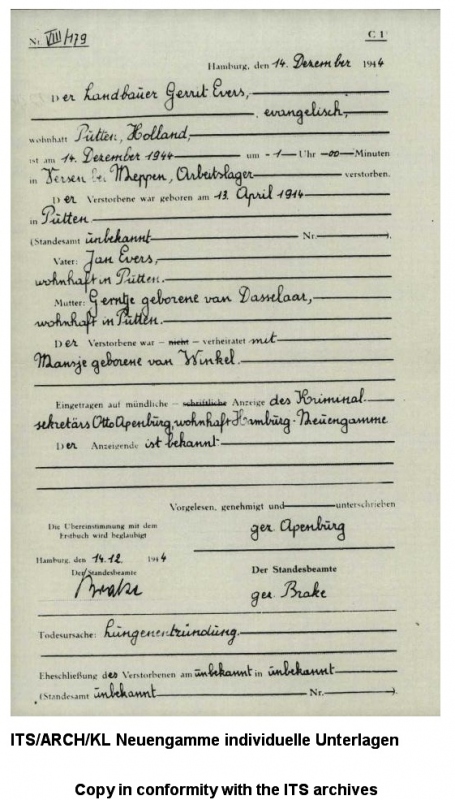 Nr. VIII/179
C 1
Hamburg, den 14. Dezember 1944
Der Landbauer Gerrit Evers,
, evangelisch,
wohnhaft Putten, Holland,
ist am 14. Dezember 1944 um -1- Uhr -00- Minuten
in Versen bei Meppen, Arbeitslager verstorben.
Der Verstorbene war geboren am 13. April 1914
in Putten
(Standesamt unbekannt Nr. ).
Vater: Jan Evers,
wohnhaft in Putten.
Mutter: Gerritje geborene van Dasselaar,
wohnhaft in Putten.
Der Verstorbene war – nicht – verheiratet mit
Mansje geborene van Winkel.
Eingetragen auf mündliche – schriftliche Anzeige des Kriminal-
sekretärs Otto Apenburg, wohnhaft Hamburg-Neuengamme
Der Anzeigende ist bekannt
Vorgelesen, genehmigt und unterschrieben
Die Übereinstimmung mit dem
Erstbuch wird beglaubigt
gez Apenburg
Hamburg, den 14.12. 1944
Der Standesbeamte
Der Standesbeamte
Brake
gez. Brake
Todesursache: Lungenentzündung.
Eheschließung des Verstorbenen am unbekannt in unbekannt
(Standesamt unbekannt Nr. ).
ITS/ARCH/KL Neuengamme individuelle Unterlagen
Copy in conformity with the ITS archives